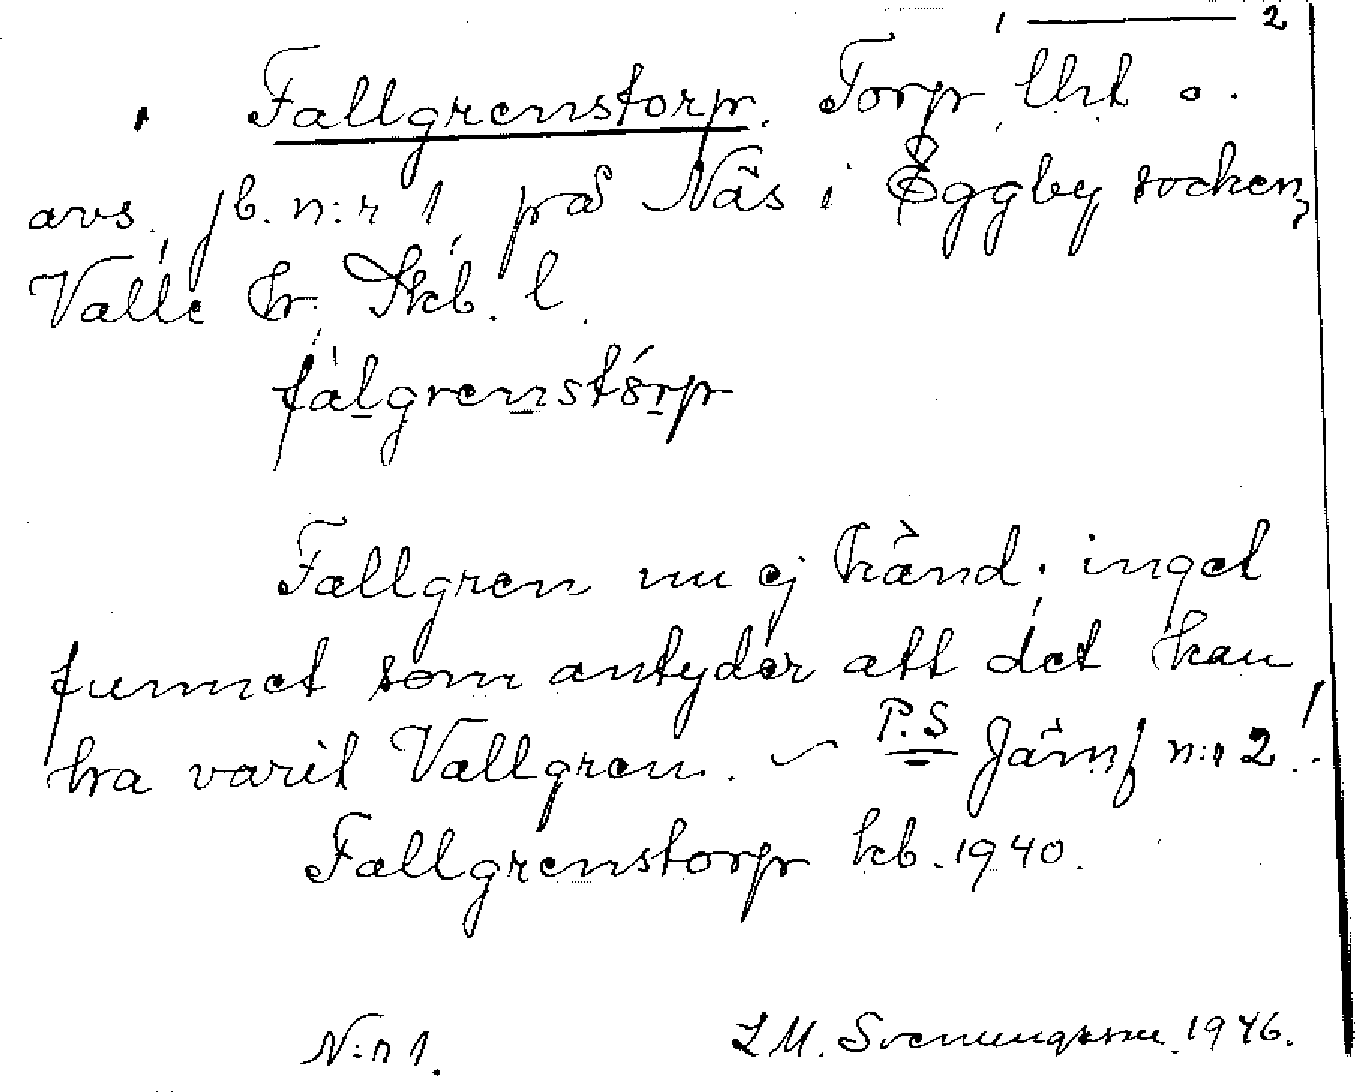 1 — 2
Fallgrenstorp. Torp, lht o.
avs. jb. n:r 1 på Näs i Eggby socken,
Valle hr. Skb. l.
fàlgrenstórp
Fallgren nu ej känd. inget
funnet som antyder att det kan
ha varit Vallgren. – P.S Jämf n:r 2!
Fallgrenstorp kb. 1940.
N:r 1. L M. Svenungsson. 1946.